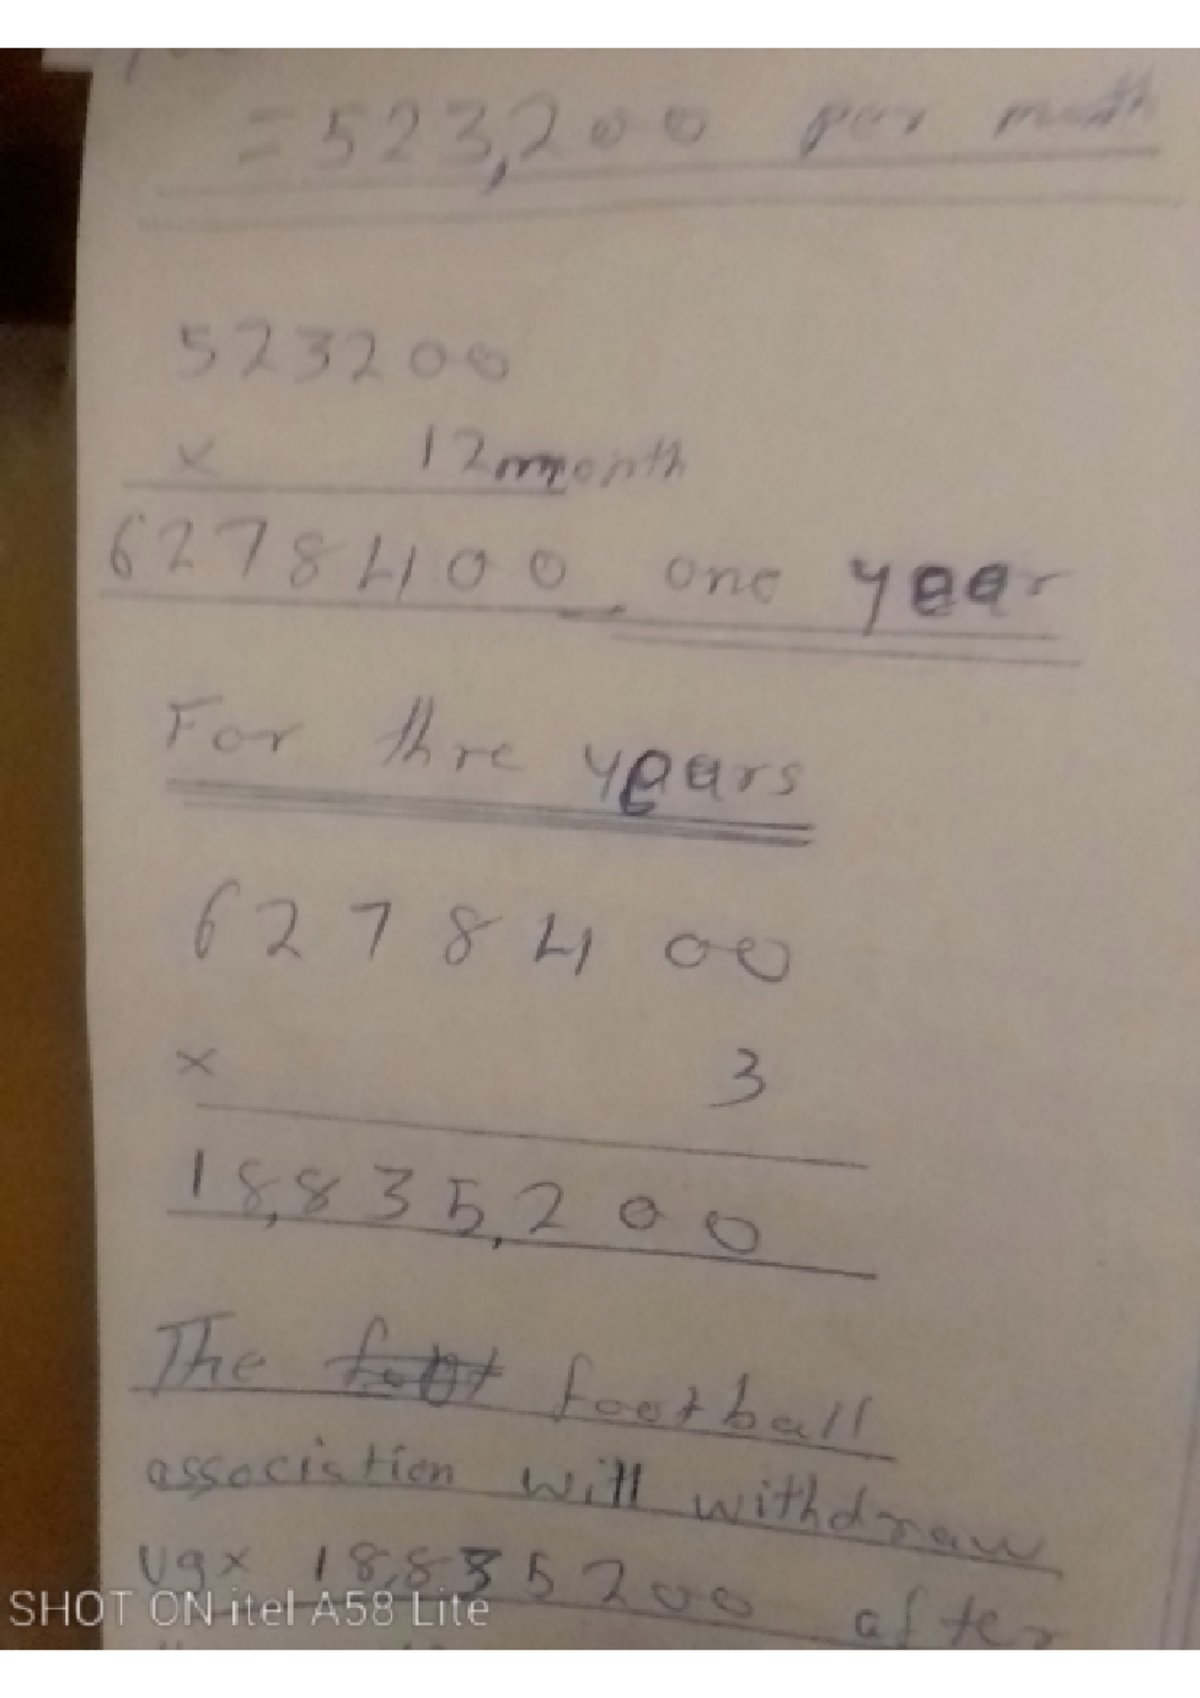 = 523,200 per month
523200
x 12month
6278400 one year
For thre years
6278400
x 3
18,835,200
The football
association will withdraw
ugx 18,835200 after
SHOT ON itel A58 Lite